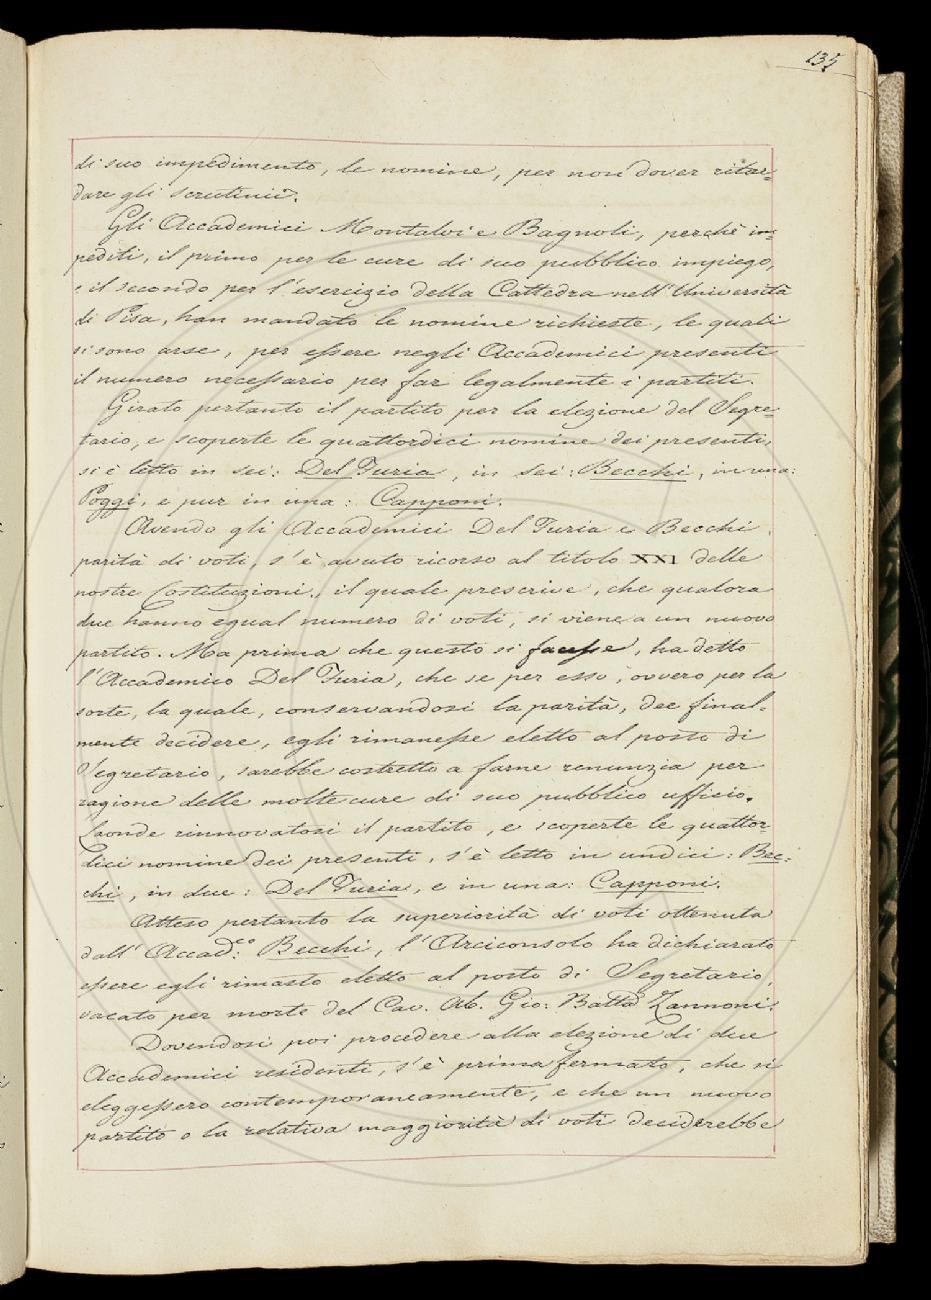 135
di suo impedimento, le nomine, per non dover ritar=
dare gli scrutinii.
Gli Accademici Montalvi e Bagnoli, perchè im=
pediti, il primo per le cure di suo pubblico impiego,
e il secondo per l'esercizio della Cattedra nell'Università
di Pisa, han mandato le nomine richieste, le quali
si sono arse, per essere negli Accademici presenti
il numero necessario per far legalmente i partiti.
Girato pertanto il partito per la elezione del Segre=
tario, e scoperte le quattordici nomine dei presenti,
si è letto in sei: Del Furia, in sei: Becchi, in una:
Poggi, e pur in una: Capponi.
Avendo gli Accademici Del Furia e Becchi
parità di voti, s'è avuto ricorso al titolo XXI delle
nostre Costituzioni, il quale prescrive, che qualora
due hanno egual numero di voti, si viene a un nuovo
partito. Ma prima che questo si facesse, ha detto
l'Accademico Del Furia, che se per esso, ovvero per la
sorte, la quale, conservandosi la parità, dee final=
mente decidere, egli rimanesse eletto al posto di
Segretario, sarebbe costretto a farne renunzia per
ragione delle molte cure di suo pubblico ufficio.
Laonde rinnovatosi il partito, e scoperte le quattor=
dici nomine dei presenti, s'è letto in undici: Bec=
chi, in due: Del Furia, e in una: Capponi.
Atteso pertanto la superiorità di voti ottenuta
dall'Accad:co Becchi, l'Arciconsolo ha dichiarato
essere egli rimasto eletto al posto di Segretario,
vacato per morte del Cav. Ab. Gio: Batta Zannoni.
Dovendosi poi procedere alla elezione di due
Accademici residenti, s'è prima fermato, che si
eleggessero contemporaneamente, e che un nuovo
partito o la relativa maggiorità di voti deciderebbe